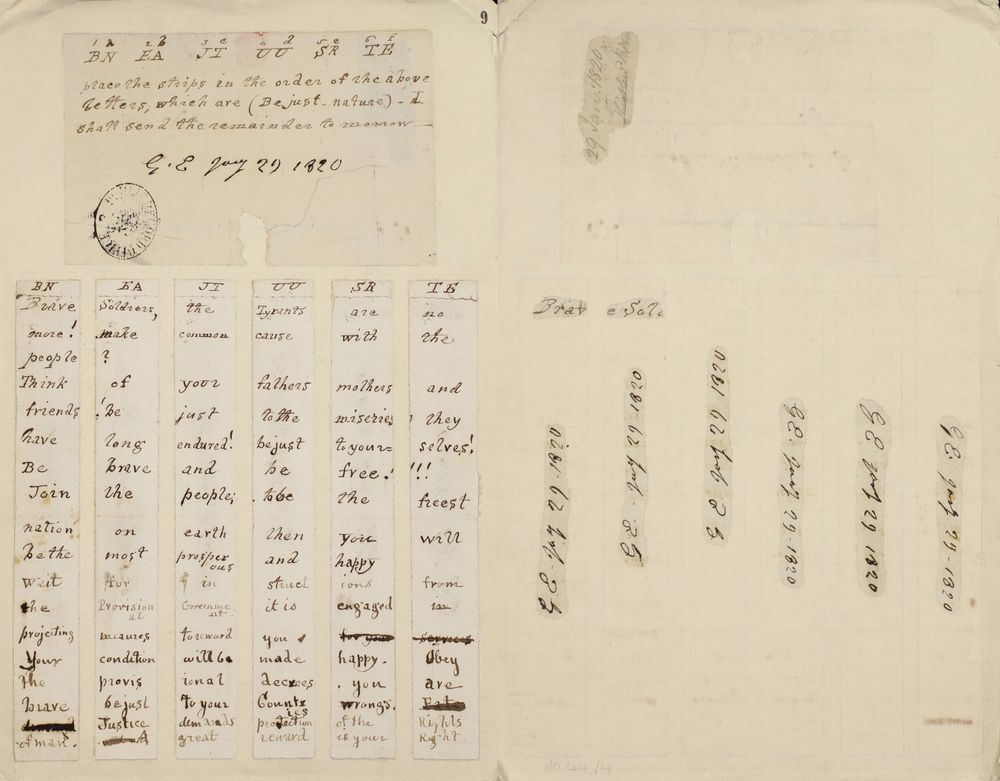 9
1 a 2 b 3 c 4 d 5 e 6 f
BN EA JT UU SR TE
place the strips in the order of the above
letters, which are (Be just - nature) - I
shall send the remainder to morrow
G. E Jay 29 1820
BN EA JT UU SR TE
Brave Soldiers, the Tyrants are no
more! make common cause with the
people ?
Think of your fathers mothers and
friends ! be just to the miseries they
have long endured! be just to your= selves!
Be brave and be free.! !!!
Join the people; to be the freest
nation on earth then you will
be the most prosperous and happy
wait for in struct ions from
the Provisional Government it is engaged in
projecting measures to reward you for your services
Your condition will be made happy. Obey
the provis ional decrees . you are
brave be just to your Countries wrongs.
Justice demands protection of the Rights
of man. A great reward is your Right
29 Jan: 1820
Brav e Sold
G E Jay 29 - 1820
G E Jay 29 - 1820
G E Jay 29 1820
G E. Jay 29 - 1820
G E Jay 29 1820
G E. Jay 29 - 1820
HO 44/4